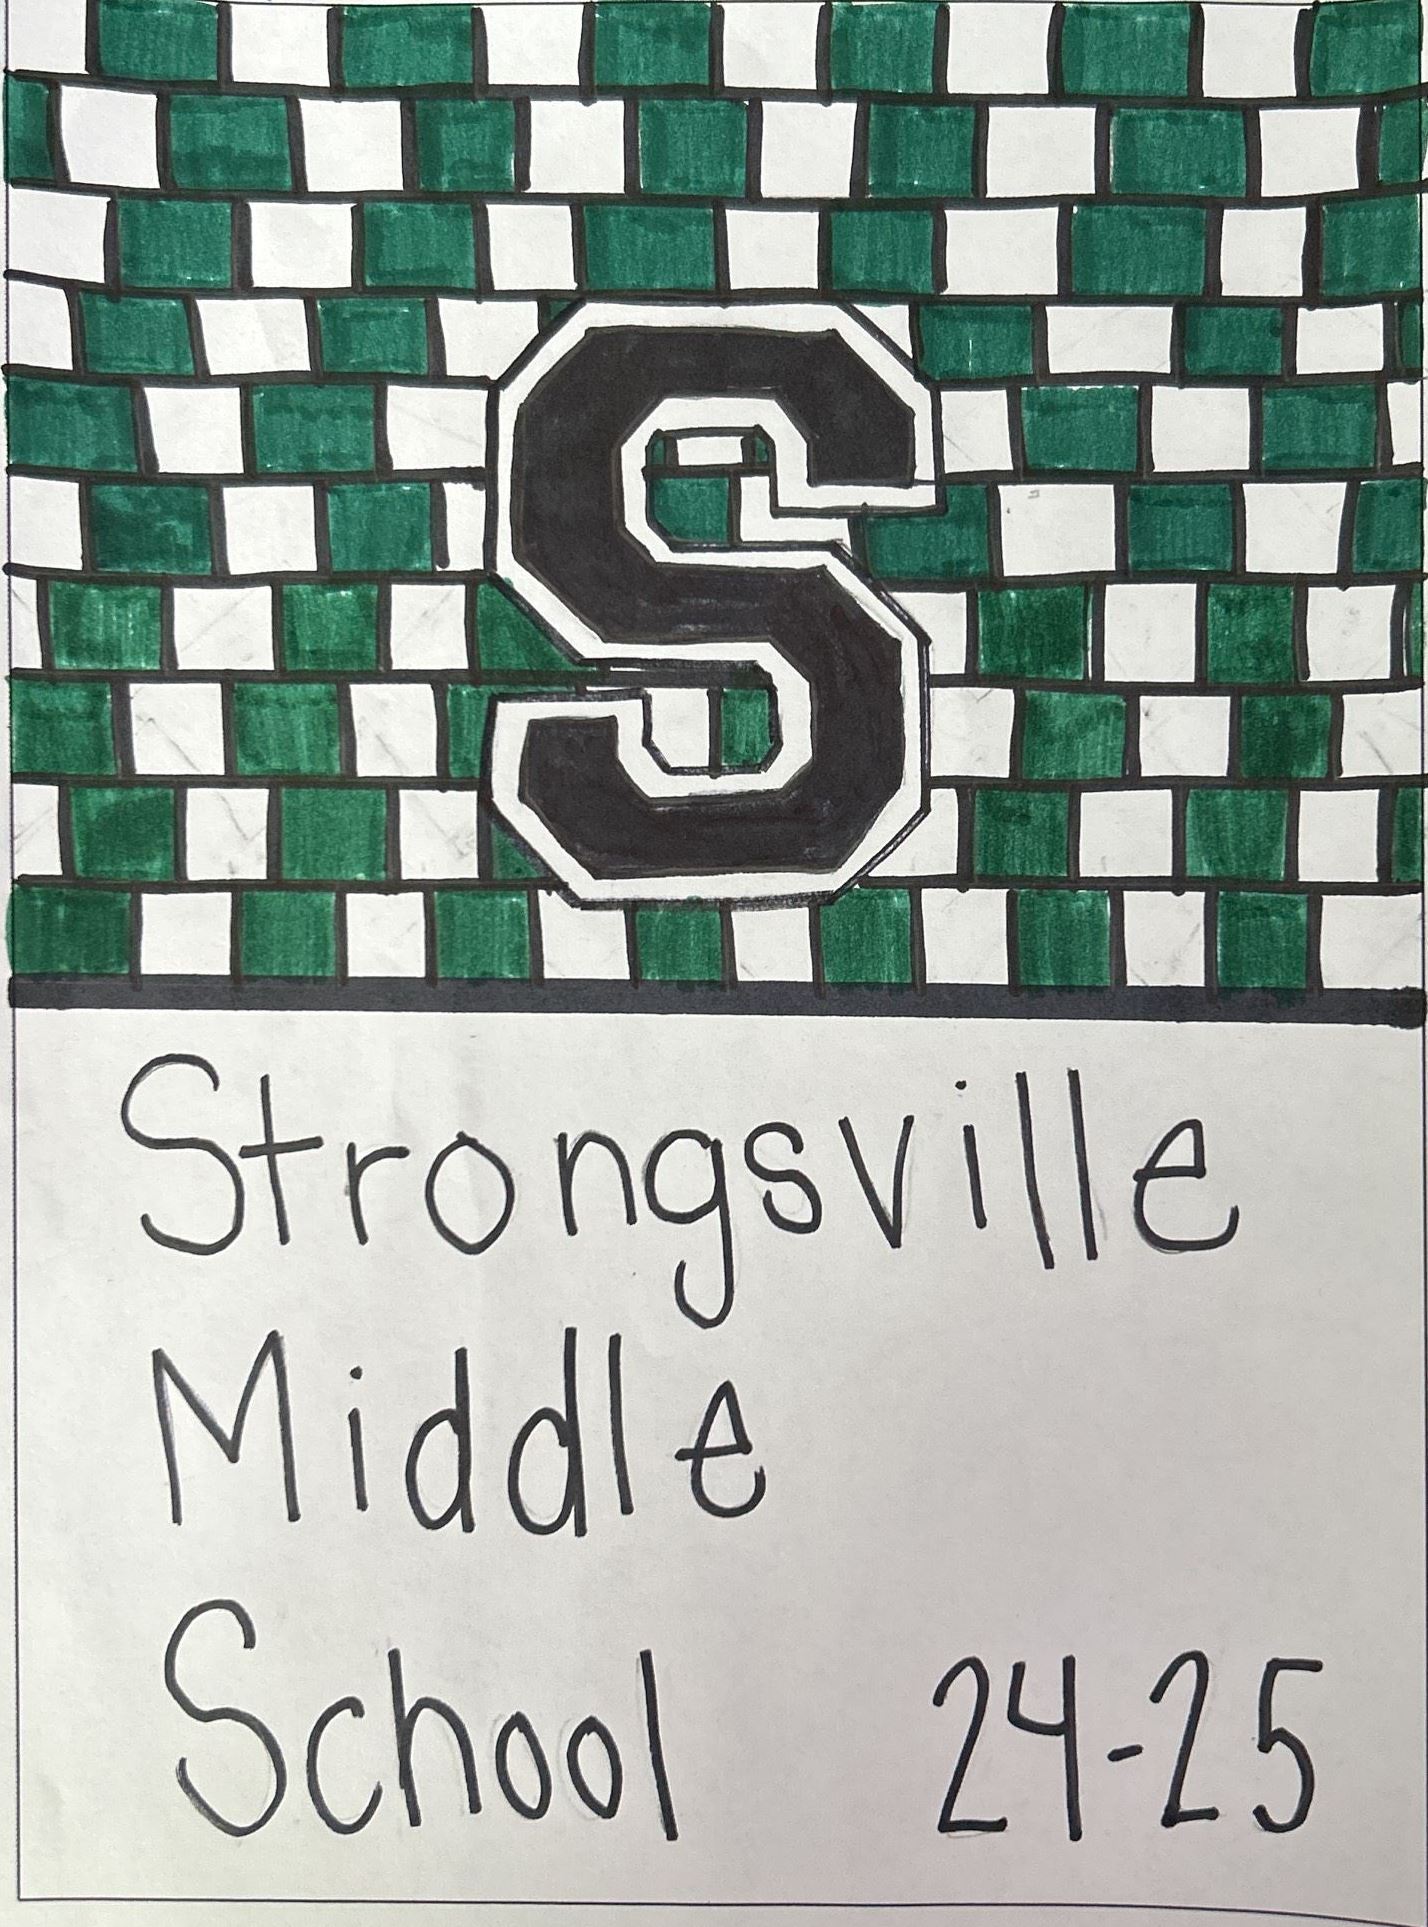 S
Strongsville
Middle
School 24-25